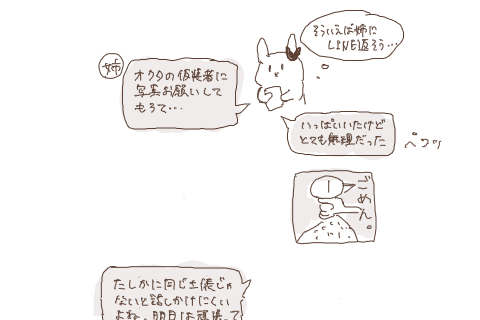 そういえば姉に
LINE返そう…
姉
オクタの仮装者に
写真お願いして
もろて…
いっぱいいたけど
とても無理だった
ペコッ
ごめん。
たしかに同じ土俵じゃ
ないと話しかけにくい
よね。明日は頑張って